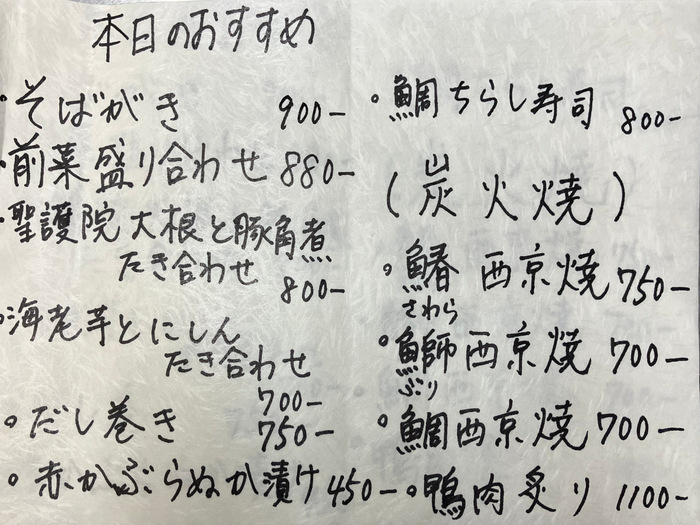 本日のおすすめ
・そばがき 900-
・前菜盛り合わせ 880-
・聖護院大根と豚角煮
たき合わせ 800-
・海老芋とにしん
たき合わせ
700-
・だし巻き 750-
・赤かぶらぬか漬け 450-
・鯛ちらし寿司 800-
(炭火焼)
・鰆西京焼 750-
さわら
・鰤西京焼 700-
ぶり
・鯛西京焼 700-
・鴨肉炙り 1100-